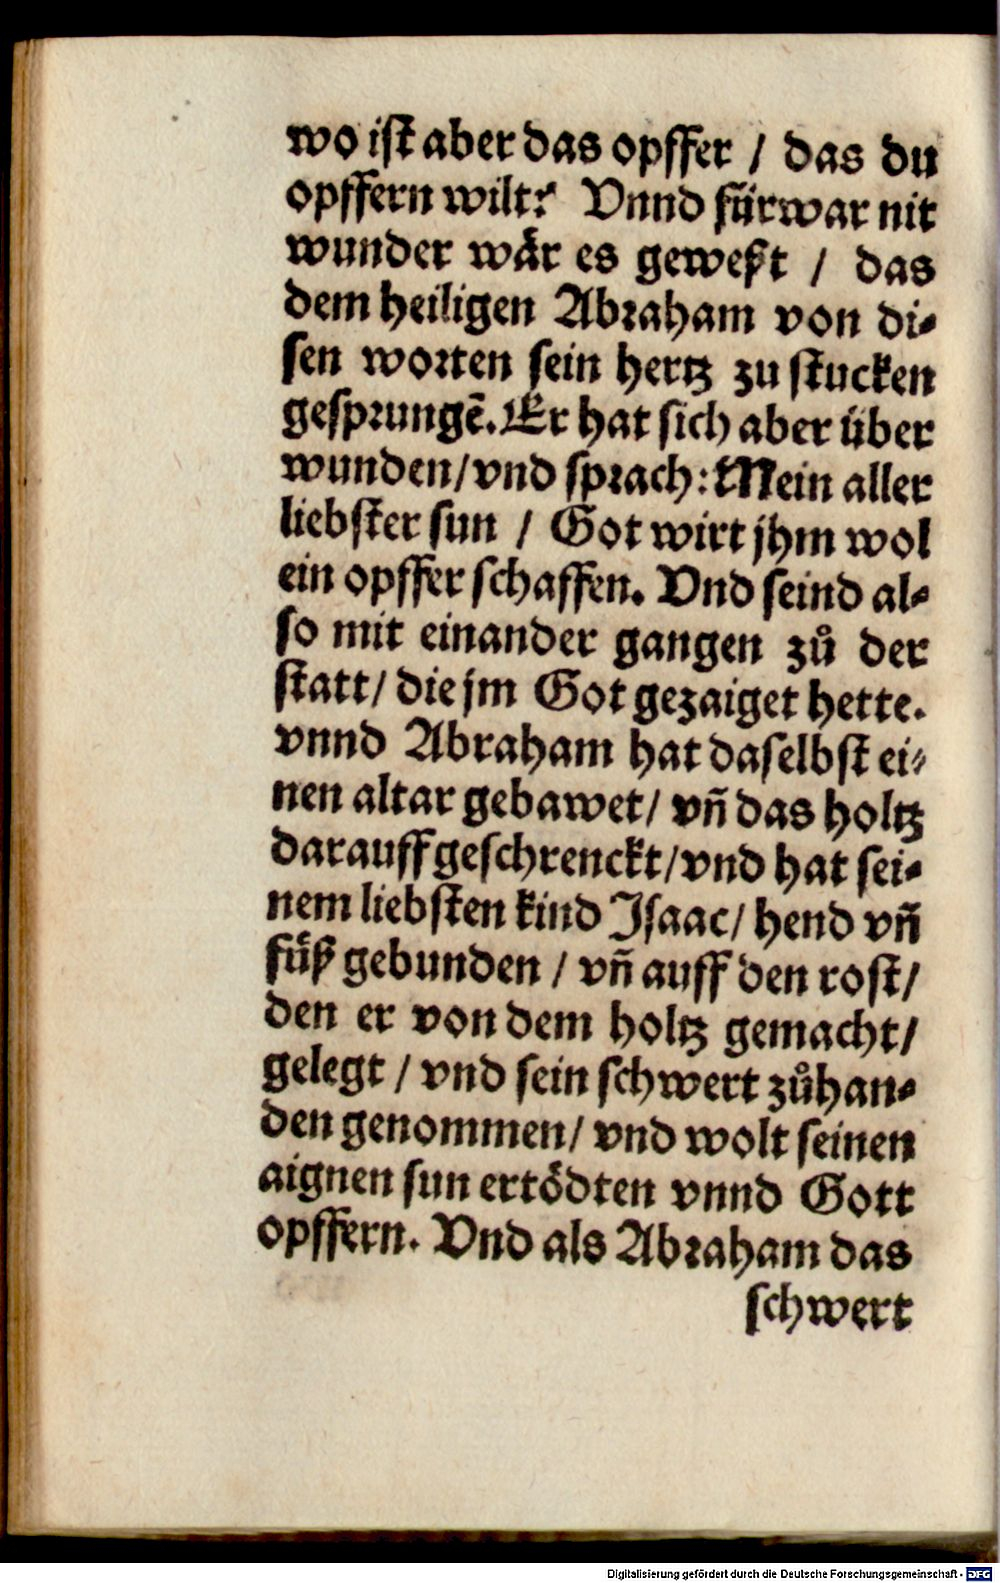 wo ist aber das opffer / das du
opffern wilt? Vnnd fürwar nit
wunder wär es geweßt / das
dem heiligen Abraham von di⸗
sen worten sein hertz zu stucken
gesprungē. Er hat sich aber über
wunden/ vnd sprach: Mein aller
liebster sun / Got wirt jhm wol
ein opffer schaffen. Vnd seind al⸗
so mit einander gangen zů der
statt/ die jm Got gezaiget hette.
vnnd Abraham hat daselbst ei⸗
nen altar gebawet/ vñ das holtz
darauff geschrenckt/ vnd hat sei⸗
nem liebsten kind Isaac/ hend vñ
füß gebunden / vñ auff den rost/
den er von dem holtz gemacht/
gelegt / vnd sein schwert zůhan⸗
den genommen/ vnd wolt seinen
aignen sun ertödten vnnd Gott
opffern. Vnd als Abraham das
schwert
Digitalisierung gefördert durch die Deutsche Forschungsgemeinschaft - DFG